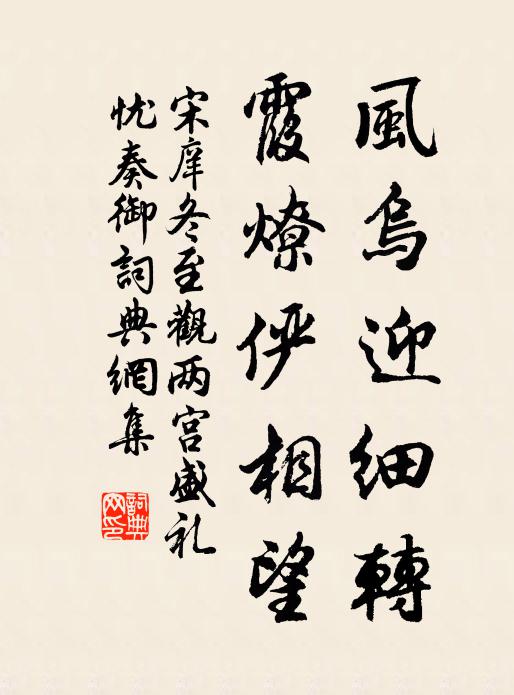 風烏迎細轉
霞燎俨相望
宋庠冬至觀两宫盛礼
忱奏御詞典網集
詞典
网印